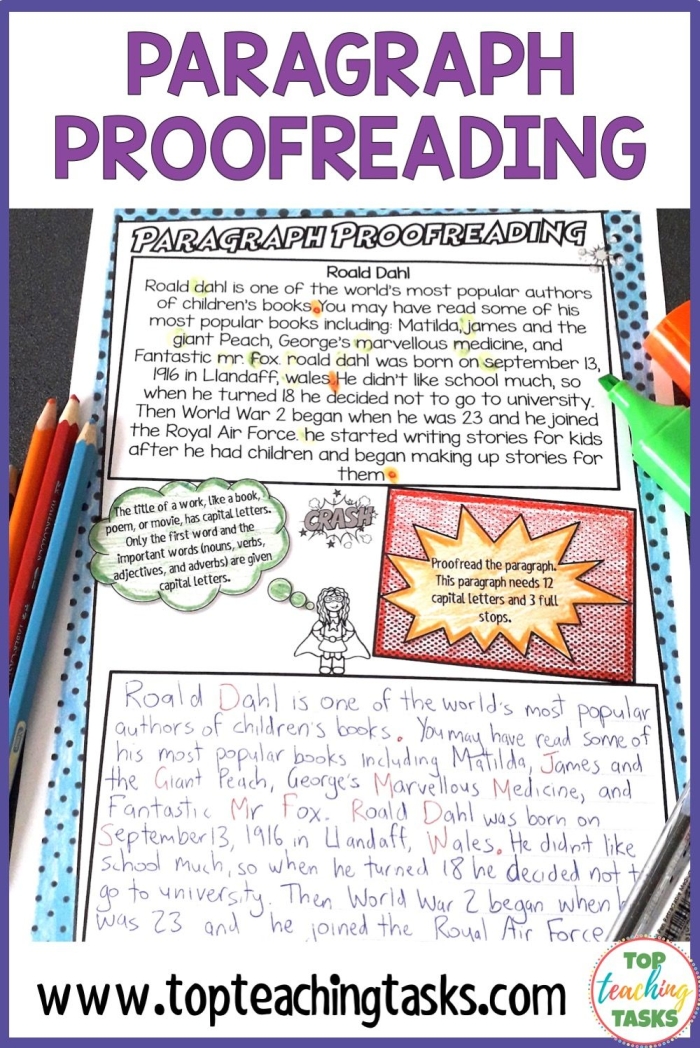 PARAGRAPH
PROOFREADING
PARAGRAPH PROOFREADING
Roald Dahl
Roald dahl is one of the world's most popular authors
of children's books. You may have read some of his
most popular books including: Matilda, james and the
giant Peach, George's marvellous medicine, and
Fantastic mr. fox. roald dahl was born on september 13,
1916 in Llandaff, wales. He didn't like school much, so
when he turned 18 he decided not to go to university.
Then World War 2 began when he was 23 and he joined
the Royal Air Force. he started writing stories for kids
after he had children and began making up stories for
them.
The title of a work, like a book,
poem, or movie, has capital letters.
Only the first word and the
important words (nouns, verbs,
adjectives, and adverbs) are given
capital letters.
CRASH
Proofread the paragraph.
This paragraph needs 12
capital letters and 3 full
stops.
Roald Dahl is one of the world's most popular
authors of children's books. You may have read some of
his most popular books including Matilda, James and
the Giant Peach, George's Marvellous Medicine, and
Fantastic Mr Fox. Roald Dahl was born on
September 13, 1916, in Llandaff, Wales. He didn't like
school much, so when he turned 18 he decided not
go to university. Then World War 2 began when
was 23 and he joined the Royal Air Force
www.topteachingtasks.com
TOP
teaching
TASKS